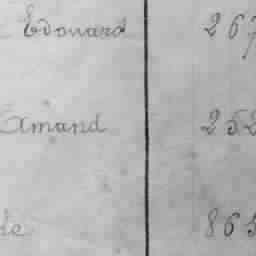 Edouard 267
Amand 252
de 865